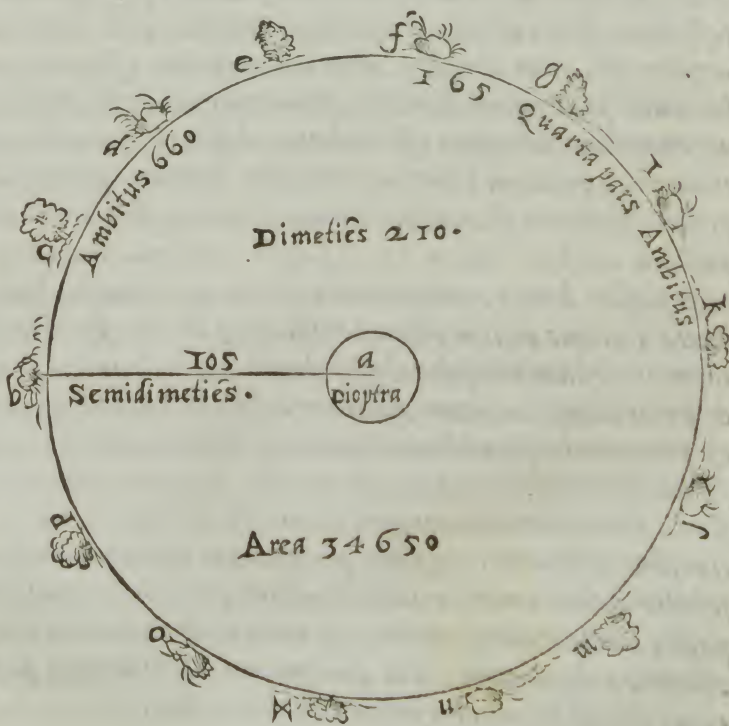 e
f
165
g
Quarta pars Ambitus
d
Ambitus 660
I
c
Dimetiēs 210.
K
105
a
b
Semidimetiēs.
Dioptra
l
p
Area 34650
o
m
n